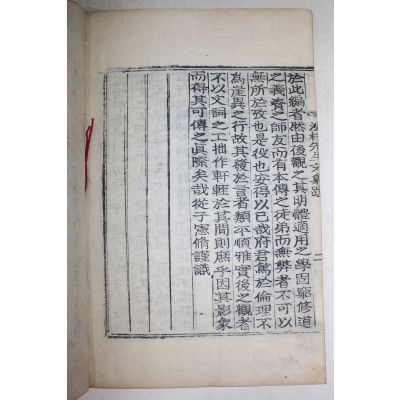 於此編者然由後觀之其明體適用之學固窮修道
之義資之師友而有本傳之徒弟而無弊者不可以
無所於攷也是役也安得以已哉府君篤於倫理不
爲崖異之行故其發於言者類平順雅實後之觀者
不以文詞之工拙作軒輊於其間則庶乎因其影象
而得其可傳之眞際矣哉從子憲脩謹識
先生文集跋
二